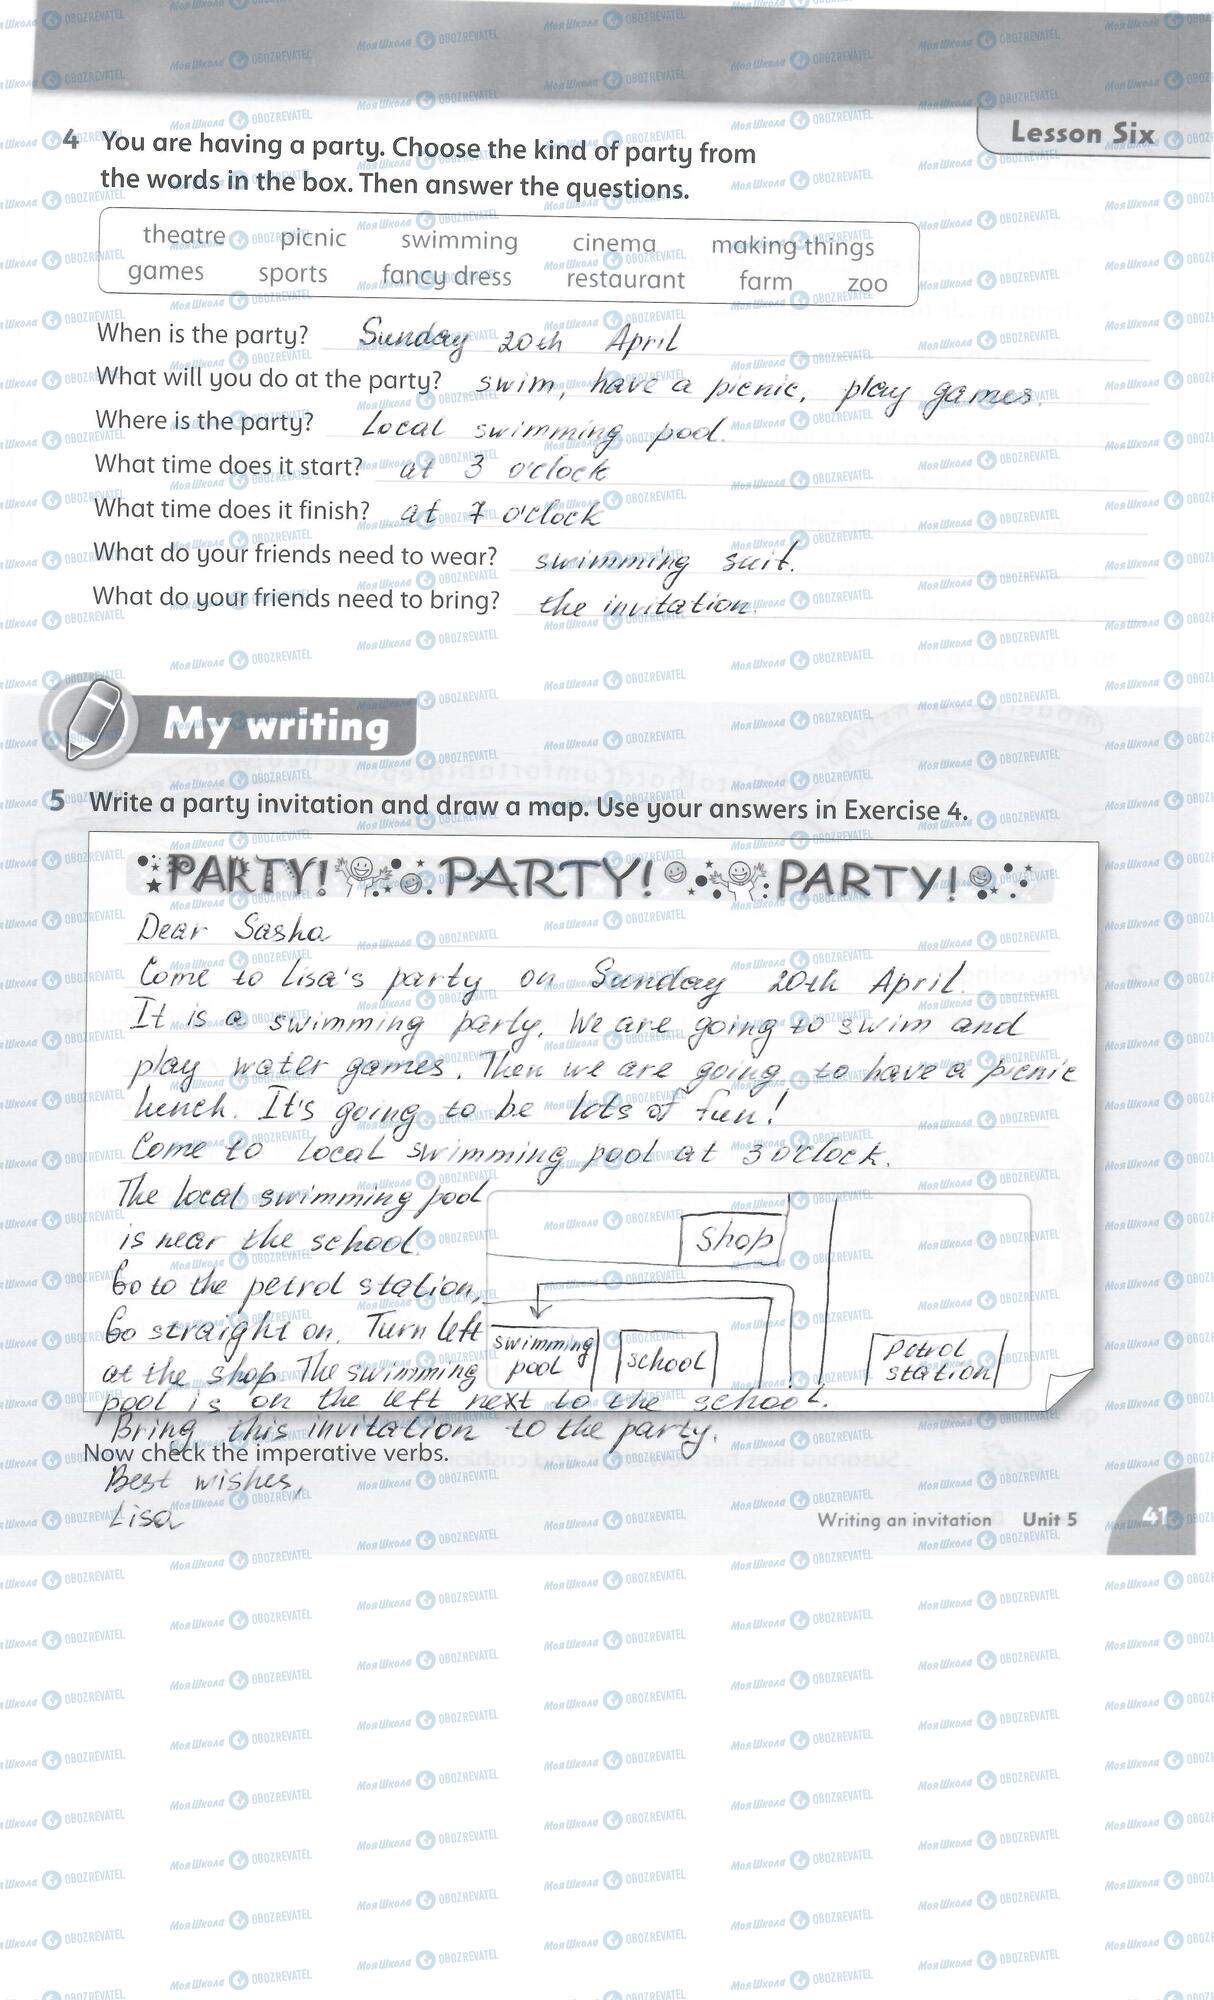 Lesson Six
4 You are having a party. Choose the kind of party from
the words in the box. Then answer the questions.
theatre picnic swimming cinema making things
games sports fancy dress restaurant farm zoo
When is the party? Sunday 20th April
What will you do at the party? swim, have a picnic, play games.
Where is the party? Local swimming pool.
What time does it start? at 3 o'clock
What time does it finish? at 7 o'clock
What do your friends need to wear? swimming suit.
What do your friends need to bring? the invitation.
My writing
5 Write a party invitation and draw a map. Use your answers in Exercise 4.
PARTY! PARTY! PARTY!
Dear Sasha
Come to Lisa's party on Sunday 20th April.
It is a swimming party. We are going to swim and
play water games. Then we are going to have a picnic
lunch. It's going to be lots of fun!
Come to local swimming pool at 3 o'clock.
The local swimming pool
is near the school.
Go to the petrol station,
Go straight on. Turn left
at the shop. The swimming
pool is on the left next to the school.
Bring this invitation to the party.
shop
swimming
pool
school
Petrol
station
Now check the imperative verbs.
Best wishes,
Lisa
Writing an invitation Unit 5 41
МояШкола OBOZREVATEL